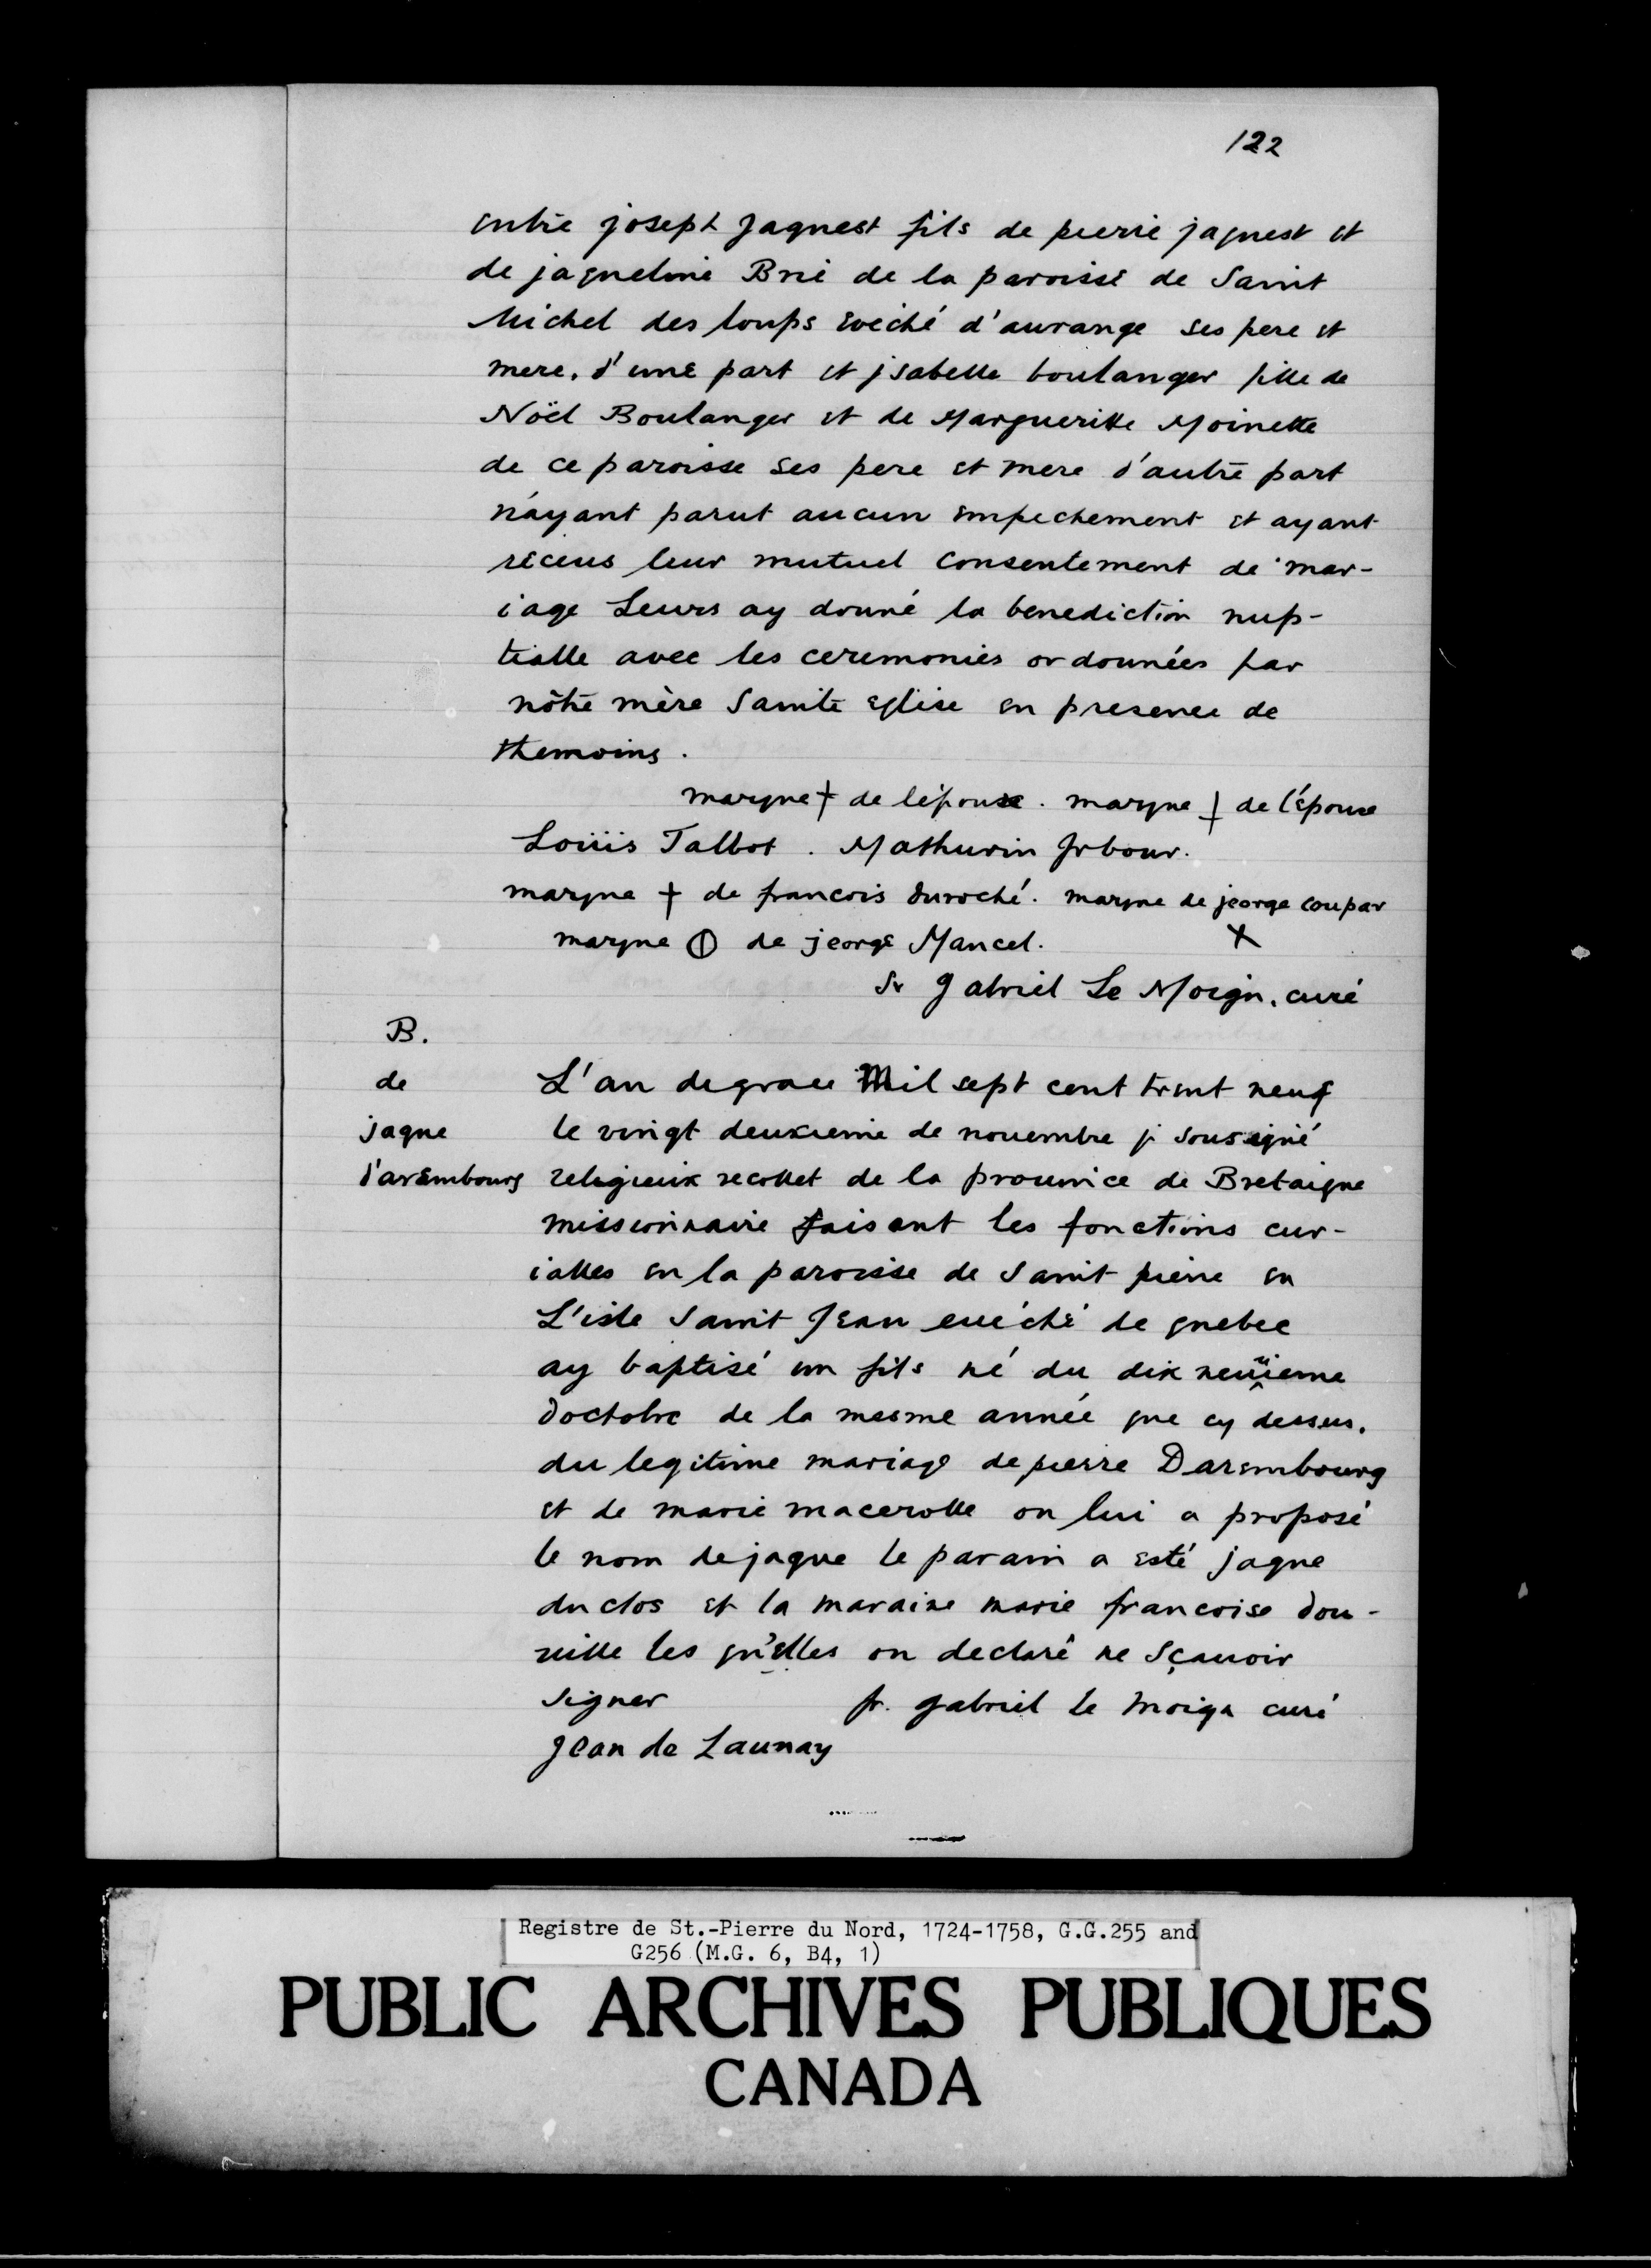 122
entre joseph Jaquest fils de pierre jaquest et
de jaqueline Brie de la paroisse de Saint
Michel des loups eveché d'avrange ses pere et
mere, d'une part et jsabelle boulanger fille de
Noël Boulanger et de Margueritte Moinette
de ce paroisse ses pere et mere d'autre part
n'ayant parut aucun empechement et ayant
receus leur mutuel consentement de mar-
iage Leurs ay donné la benediction nup-
tialle avec les ceremonies ordonnées par
nôtre mère Sainte eglise en presence de
themoins.
marque † de lépouse. marque † de l'épouse
Loüis Talbot. Mathurin Jrbour.
marque † de francois duroché. marque de jeorge coupar
marque de jeorge Mancel. X
fr gabriel Le Moign, curé
B.
de
jaque
d'arembourg
L'an de grace Mil sept cent trent neuf
le vingt deuxieme de nouembre je sousigné
religieux recollet de la prouince de Bretaigne
missionnaire faisant les fonctions cur-
ialles en la paroisse de Saint pierre en
L'isle Saint Jean euéché de quebec
ay baptisé un fils né du dix neuuieme
d'octobre de la mesme année que cy dessus.
du legitime mariage de pierre Darembourg
et de marie macerolle on lui a proposé
le nom de jaque le parain a esté jaque
duclos et la maraine marie francoise dou-
uille les qu'elles on declaré ne sçauoir
signer fr. gabriel le moign curé
Jean de Launay
Registre de St.-Pierre du Nord, 1724-1758, G.G.255 and
G256 (M.G. 6, B4, 1)
PUBLIC ARCHIVES PUBLIQUES
CANADA